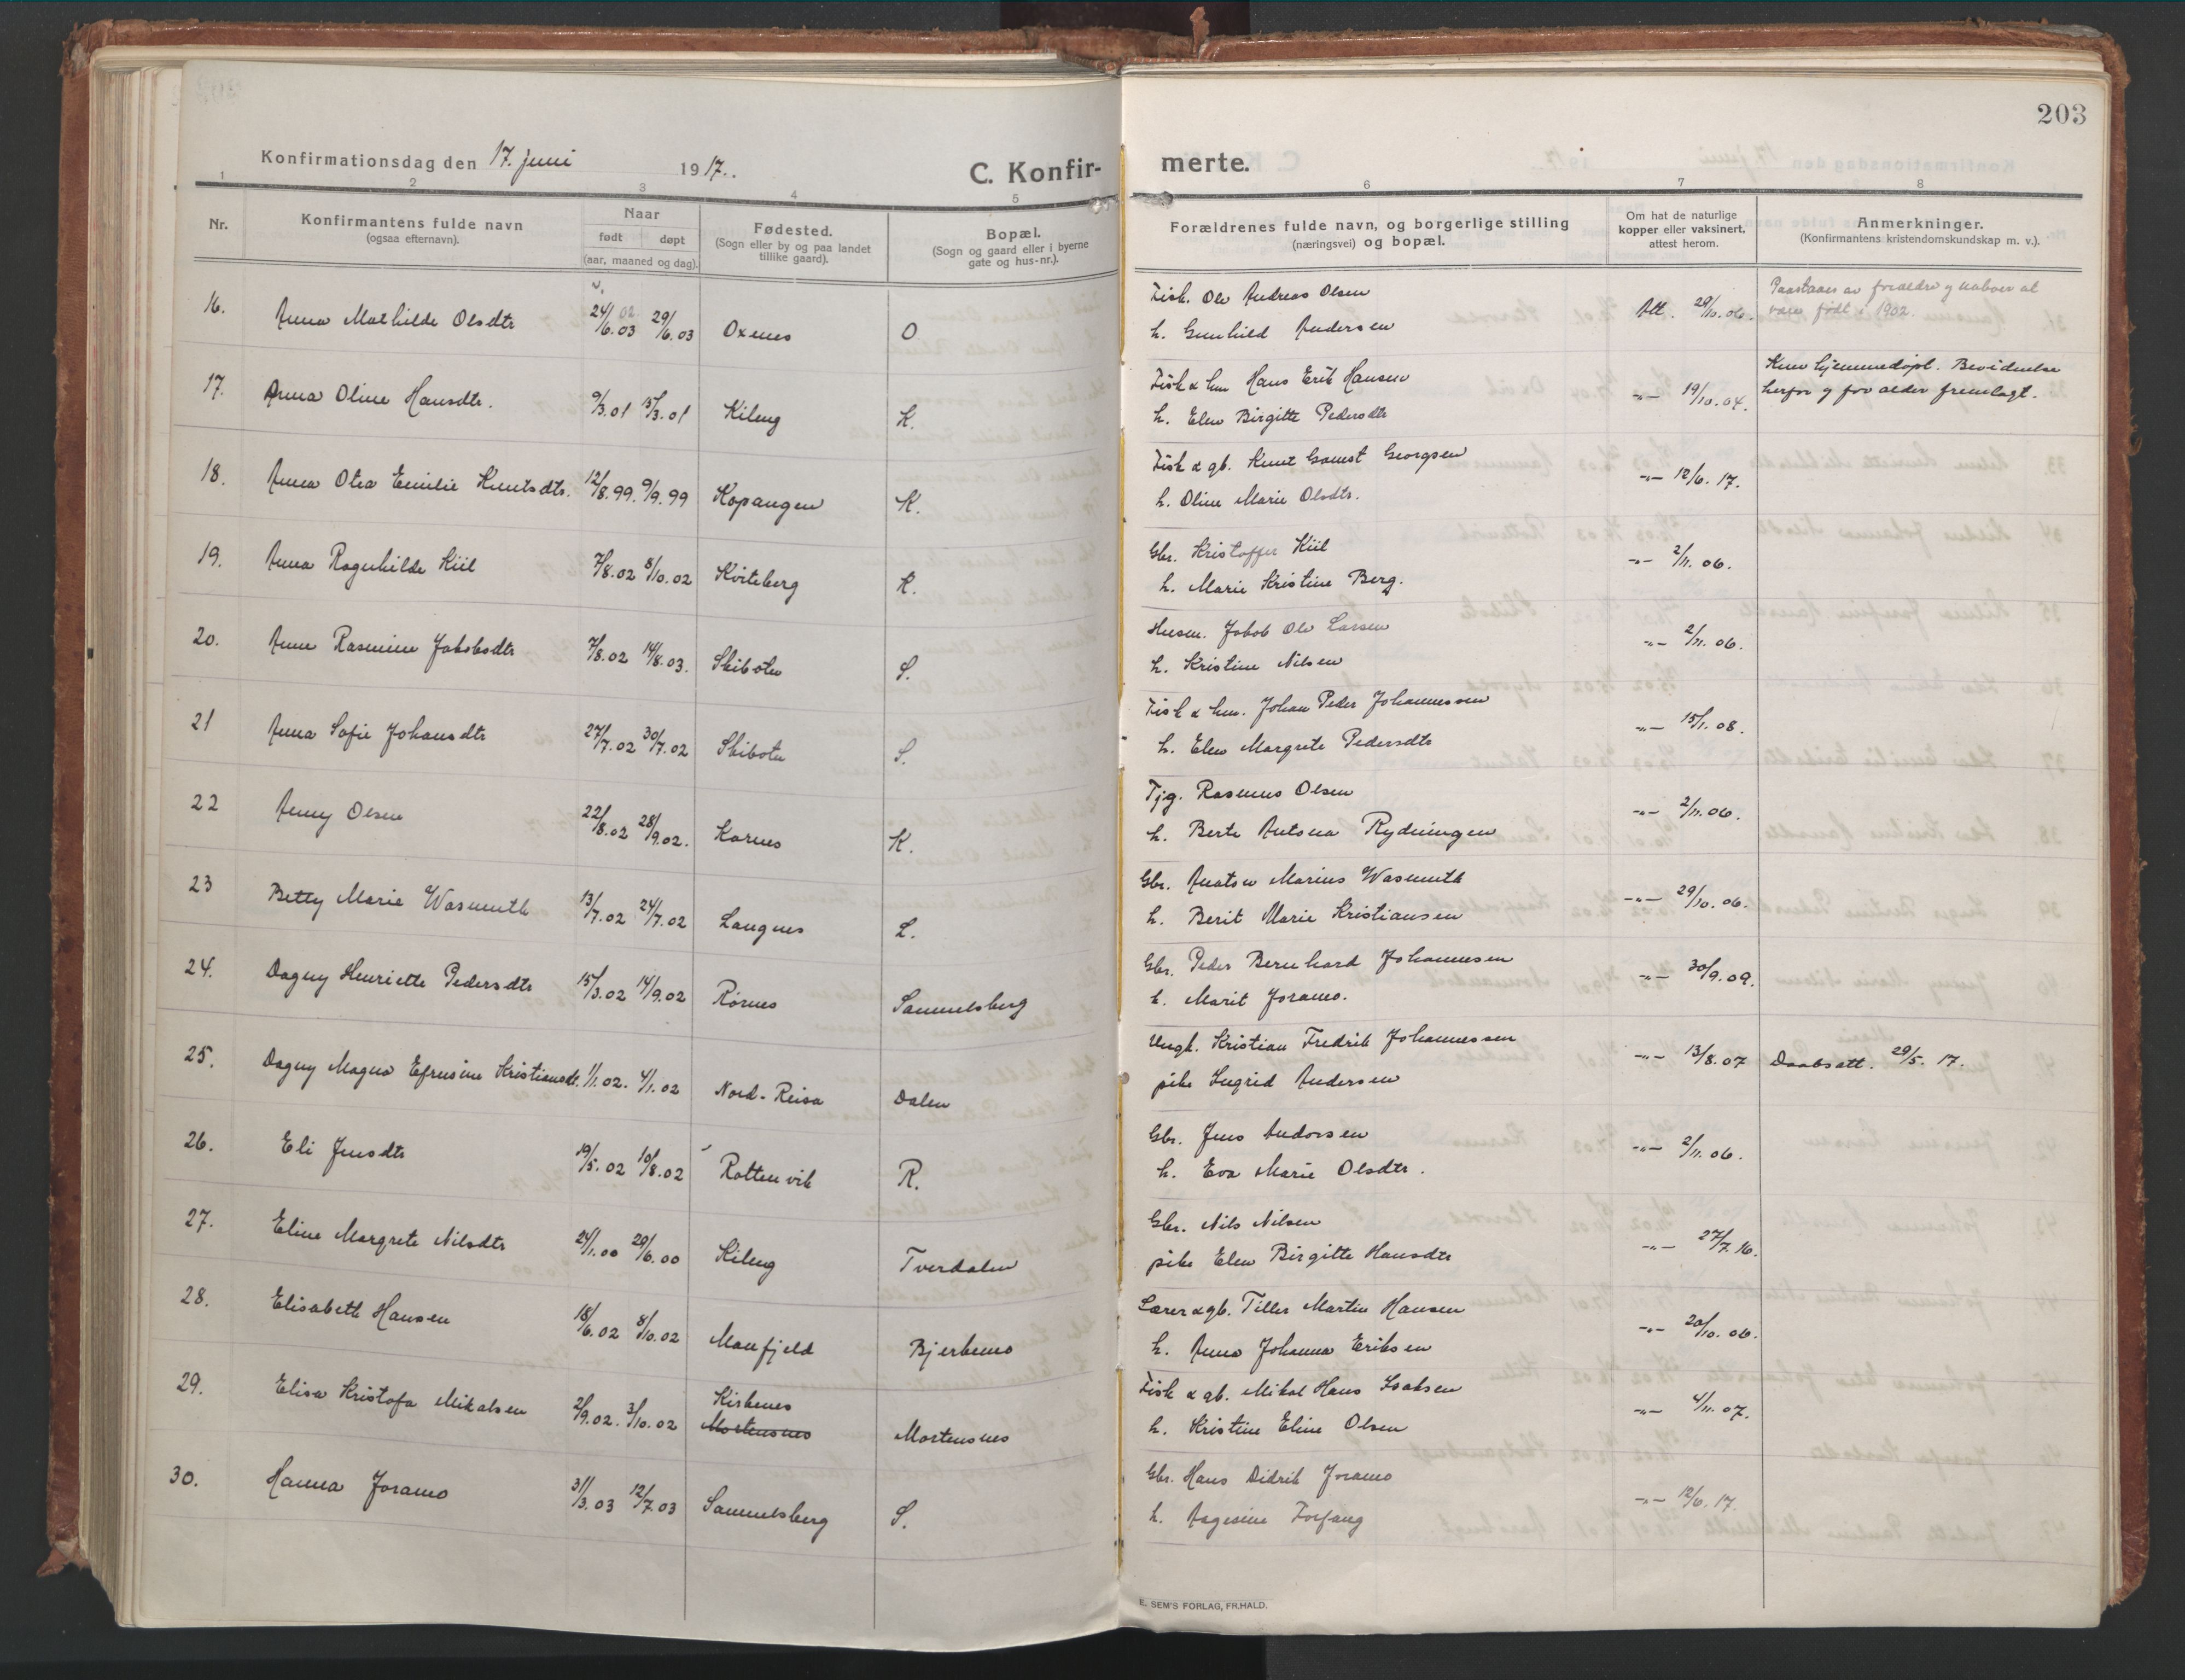 203
Konfirmationsdag den 17. juni 1917. C. Konfir- merte.
1 2 3 4 5 6 7 8
Nr. Konfirmantens fulde navn (ogsaa efternavn). Naar født døpt (aar, maaned og dag). Fødested. (Sogn eller by og paa landet tillike gaard). Bopæl. (Sogn og gaard eller i byerne gate og hus-nr.). Forældrenes fulde navn, og borgerlige stilling (næringsvei) og bopæl. Om hat de naturlige kopper eller vaksinert, attest herom. Anmerkninger. (Konfirmantens kristendomskundskap m. v.).
16. Anna Mathilde Olsdtr 24/6.03 02 29/6.03 Oxnes O Fisk. Ole Andreas Olsen Att. 29/10.06. Paastaaes av forældre og naboer at
h. Gunhild Andersen være født i 1902.
17. Anna Oline Hansdtr. 9/3.01 15/3.01 Kileng K. Fisk & hm Hans Erik Hansen -"- 19/10.04. Kun hjemmedøpt. Bevidnelse
h. Elen Birgitte Pedersdtr herfor og for alder fremlagt.
18. Anna Otea Emilie Knutsdtr. 12/8.99. 9/9.99 Kopangen K. Fisk & gb. Knut Gamst Georgsen -"- 12/6.17.
h. Oline Marie Olsdtr.
19. Anna Ragnhilde Kiil 7/8.02 5/10.02 Kviteberg K. Gbr. Kristoffer Kiil -"- 2/11.06.
h. Marie Kristine Berg.
20. Anne Rasmine Jakobsdtr 7/8.02 14/8.03. Skiboten S. Husm. Jakob Ole Larsen -"- 2/11.06.
h. Kristine Nilsen
21 Anna Sofie Johansdtr 27/7.02 30/7.02 Skiboten S. Fisk & hm. Johan Peder Johannessen -"- 15/1.08.
h. Elen Margrete Pedersdtr
22 Anny Olsen 22/8.02 28/9.02. Karnes K. Tjg. Rasmus Olsen -"- 2/11.06.
h. Berte Antona Rydningen
23 Betty Marie Wasmuth 13/7.02 24/7.02 Langnes L. Gbr. Anton Marius Wasmuth -"- 29/10.06.
h. Berit Marie Kristiansen
24. Dagny Henriette Pedersdtr 15/3.02 14/9.02 Rørnes Samuelsberg Gbr. Peder Bernhard Johannesen -"- 30/9.09.
h. Marit Joramo.
25. Dagny Magna Efrusine Kristiansdt. 1/1.02. 4/1.02 Nord-Reisa Dalen Ungk. Kristian Fredrik Johannessen -"- 13/8.07 Daabsatt. 29/5.17.
pike Ingrid Andersen
26. Eli Jensdtr 19/5.02 10/8.02 Rottenvik R. Gbr. Jens Andersen -"- 2/11.06.
h. Eva Marie Olsdtr.
27. Eline Margrete Nilsdtr 24/1.00 29/6.00 Kileng Tverdalen Gbr. Nils Nilsen -"- 27/7.16.
pike Elen Birgitte Hansdtr
28. Elisabeth Hansen 18/6.02 5/10.02 Manfjeld Bjerkemo Lærer & gb. Tiller Martin Hansen -"- 20/10.06.
h. Anna Johanna Eriksen
29. Elisa Kristofa Mikalsen 2/9.02. 3/10.02 Kirkenes Mortensnes Mortensnes Fisk & gb. Mikal Hans Isaksen -"- 4/11.07.
h. Kristine Eline Olsen
30. Hanna Joramo 31/3.03 12/7.03 Samuelsberg S. Gbr. Hans Didrik Joramo -"- 12/6.17.
h. Aagesine Forfang
E. SEM'S FORLAG, FR.HALD.